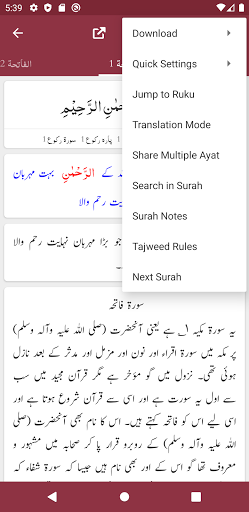 5:39
Download
Quick Settings
Jump to Ruku
Translation Mode
Share Multiple Ayat
Search in Surah
Surah Notes
Tajweed Rules
Next Surah
الفاتحة 2
1
الرَّحِيْمِ
سورۃ رکوع 1 پارہ رکوع 1
کے الرَّحْمٰنِ بہت مہربان
رحم والا
جو بڑا مہربان نہایت رحم والا
سورۃ فاتحہ
یہ سورۃ مکیہ ہے یعنی آنحضرت (صلی اللہ علیہ وآلہ وسلم)
پر مکہ میں سورۃ اقراء اور نون اور مزمل اور مدثر کے بعد نازل
ہوئی تھی۔ نزول میں گو مؤخر ہے مگر قرآن مجید میں سب
سے اول یہ سورت ہے اور اسی سے قرآن شروع ہوتا ہے اور
اسی لیے اس کو فاتحہ کہتے ہیں۔ اس کا نام بھی آنحضرت (صلی
اللہ علیہ وآلہ وسلم) کے روبرو قرار پا کر صحابہ میں مشہور و
معروف تھا گو اس کے اور بھی نام ہیں جیسا کہ سورۃ شفاء کہ